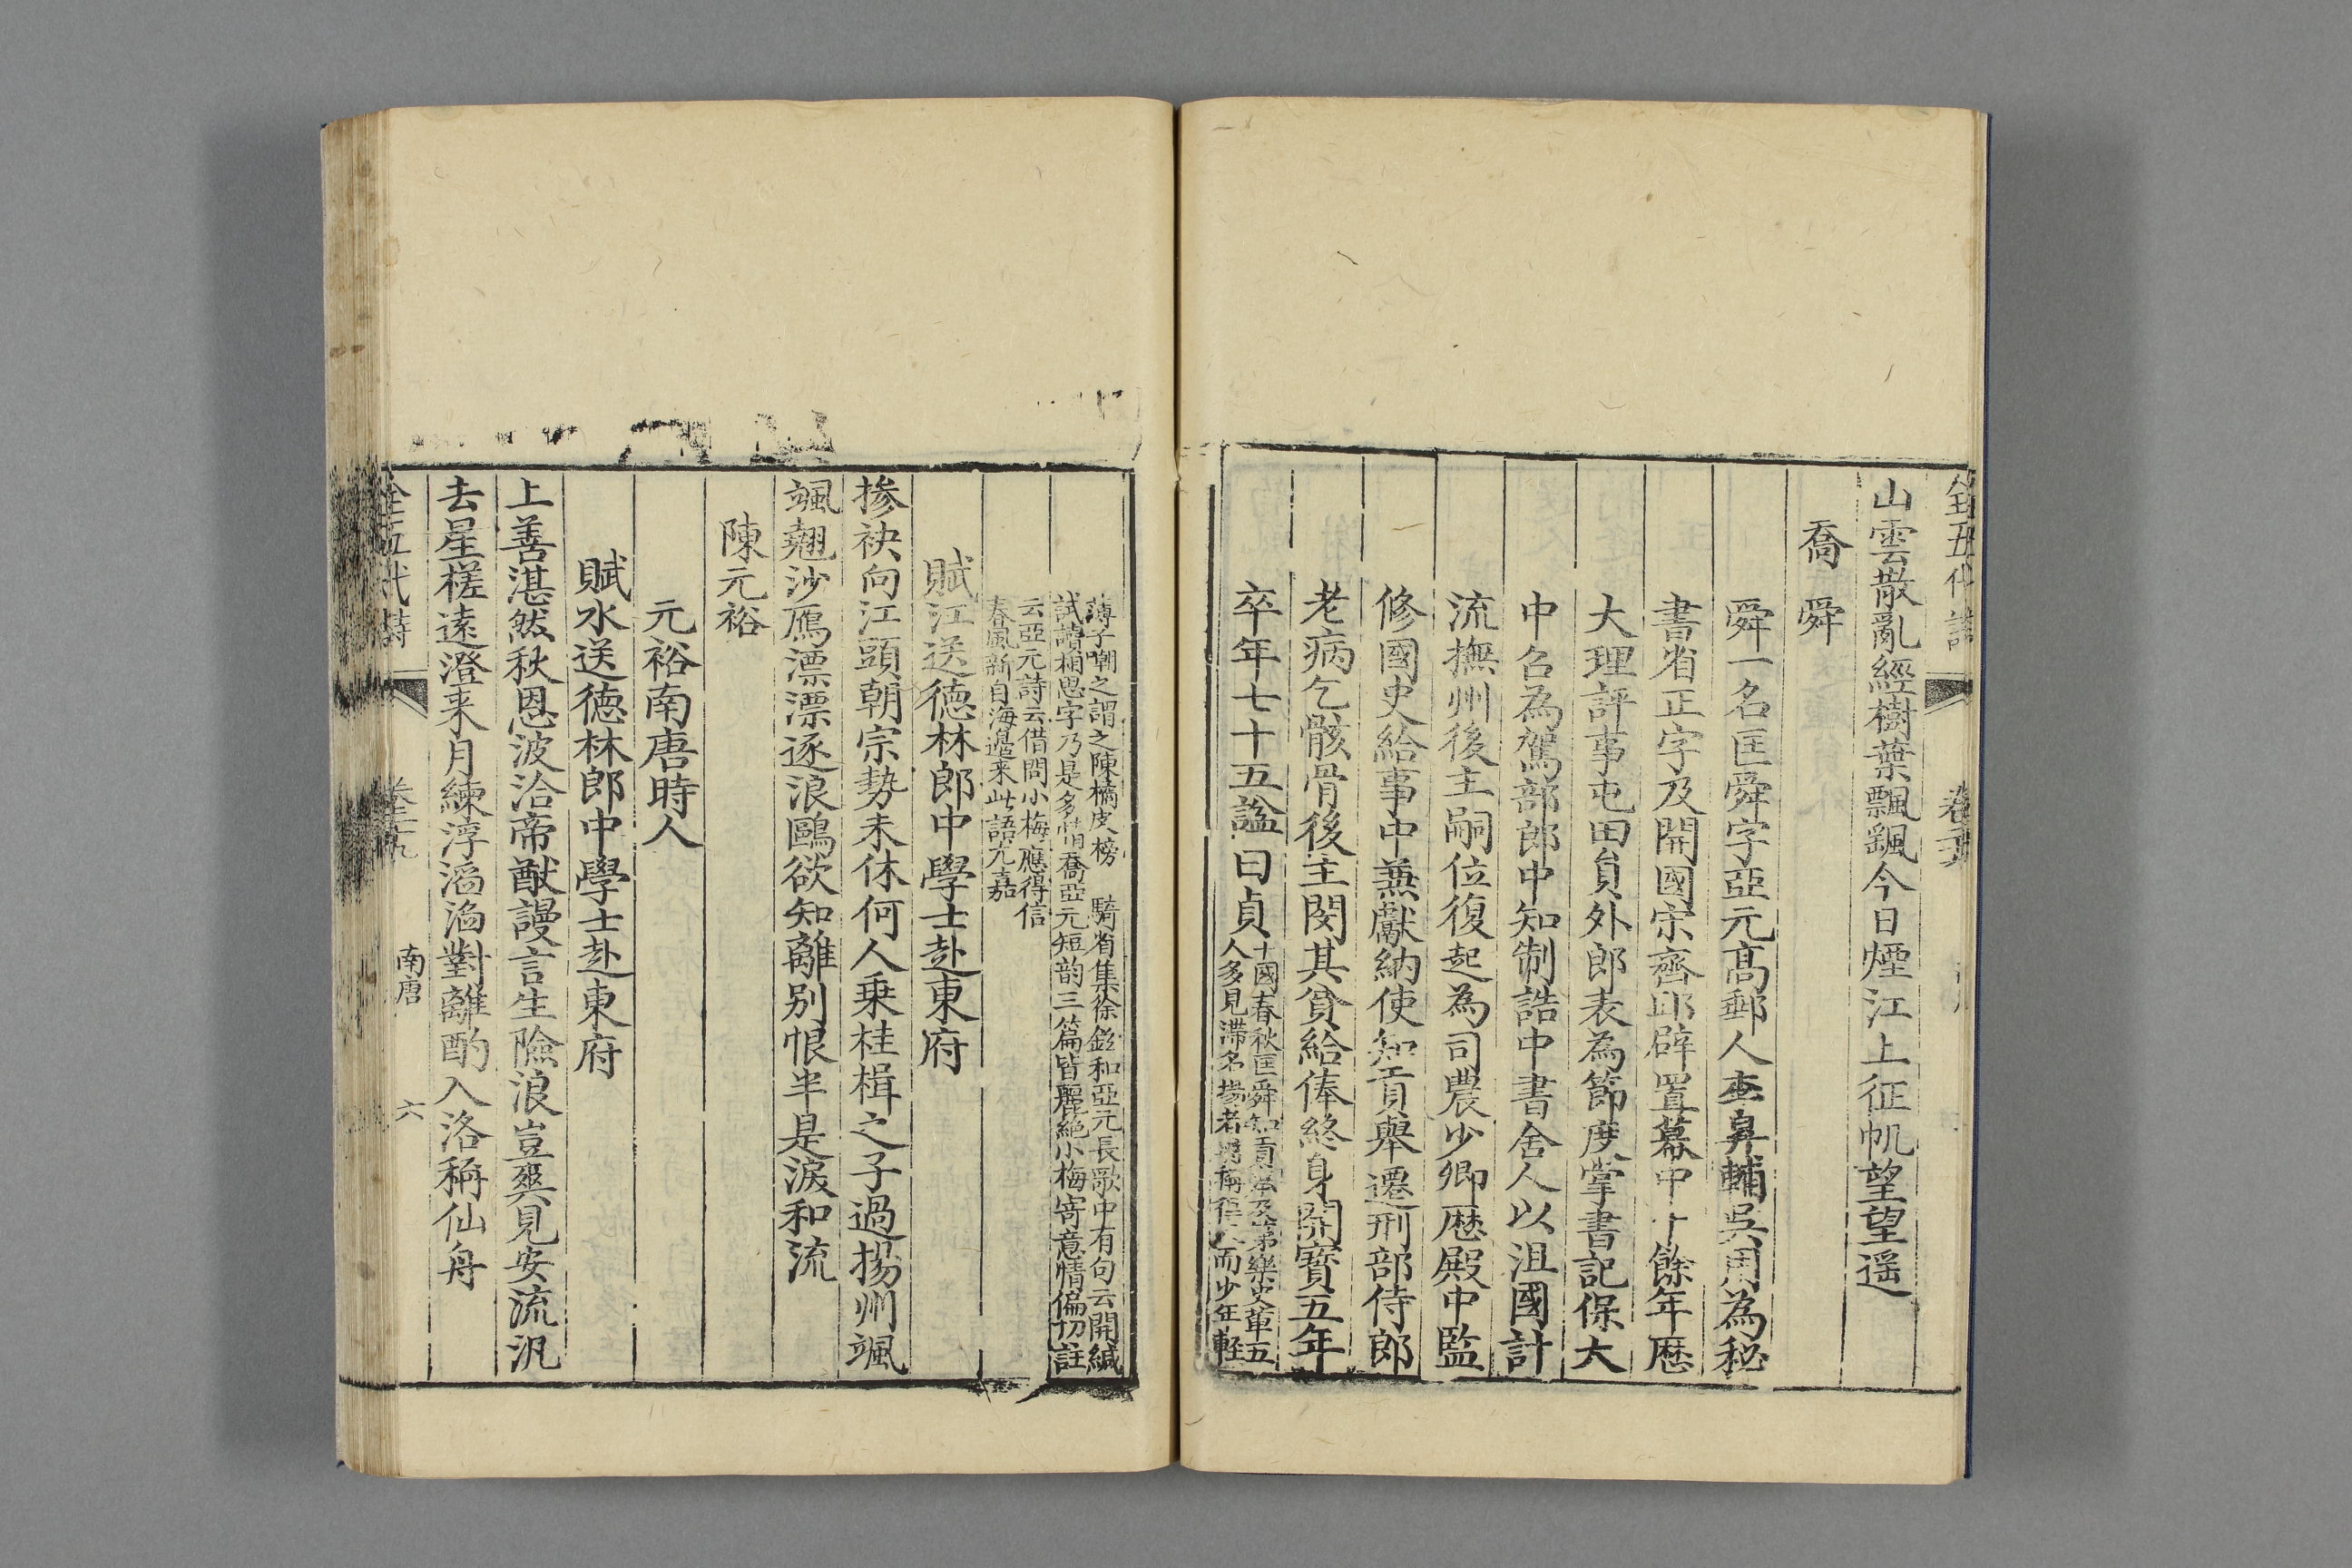 山雲散亂經樹葉飄颻今日煙江上征帆望望遥
喬舜
舜一名匡舜字亞元髙郵人李昪輔吳用為秘
書省正字及開國宋齊邱辟置幕中十餘年歴
大理評事屯田員外郎表為節度掌書記保大
中召為駕部郎中知制誥中書舍人以沮國計
流撫州後主嗣位復起為司農少卿歴殿中監
修國史給事中兼獻納使知貢舉遷刑部侍郎
老病乞骸骨後主閔其貧給俸終身開寳五年
卒年七十五諡曰貞
十國春秋匡舜知貢舉及第樂史軰五
人多見滞名塲者時稱得人而少年輕
薄子嘲之謂之陳橘皮榜 騎省集徐鉉和亞元長歌中有句云開緘
試讀相思字乃是多情喬亞元短韵三篇皆麗絶小梅寄意情偏切註
云亞元詩云借問小梅應得信
春風新自海邊来此語尤嘉
賦江送徳林郎中學士赴東府
摻袂向江頭朝宗勢未休何人乗桂楫之子過揚州颯
颯翹沙鴈漂漂逐浪鷗欲知離别恨半是淚和流
陳元裕
元裕南唐時人
賦水送徳林郎中學士赴東府
上善湛然秋恩波洽帝猷謾言生險浪豈爽見安流汎
去星槎逺澄来月練浮滔滔對離酌入洛稱仙舟
全五代詩
南唐
六